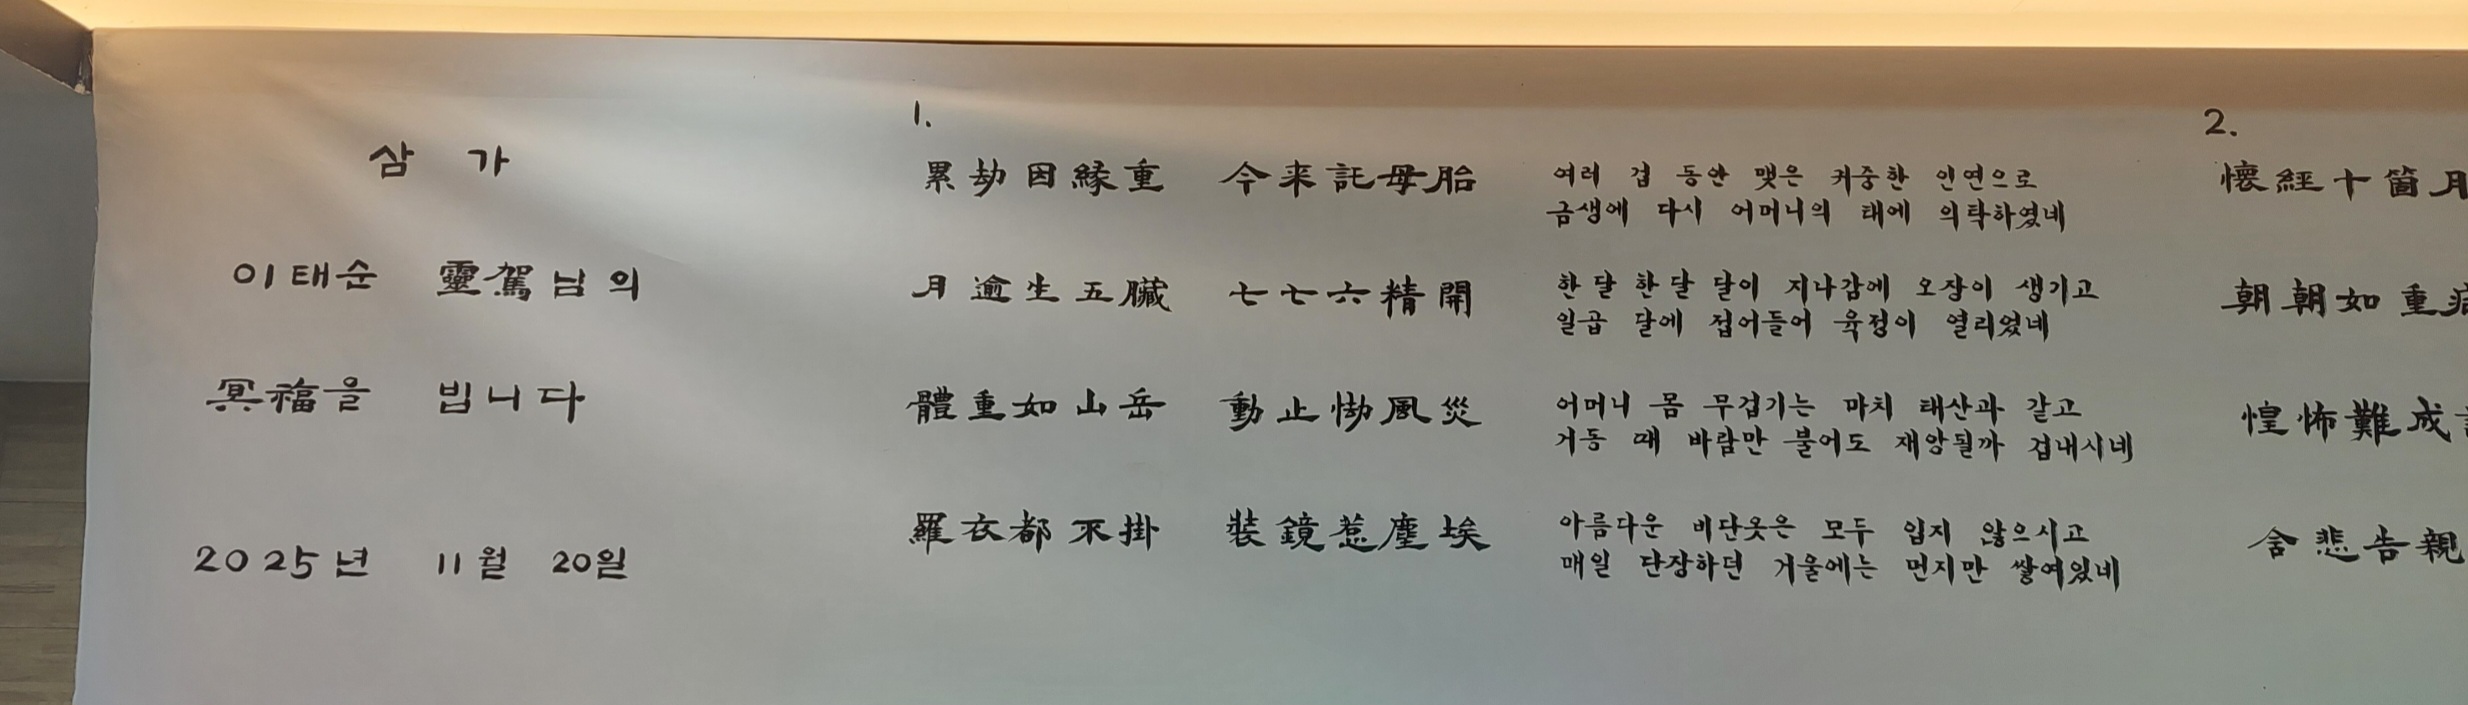 삼 가
이태순 靈駕님의
冥福을 빕니다
2025년 11월 20일
1.
累劫因緣重 今来託母胎
여러 겁 동안 맺은 귀중한 인연으로
금생에 다시 어머니의 태에 의탁하였네
月逾生五臟 七七六精開
한달 한달 달이 지나감에 오장이 생기고
일곱 달에 접어들어 육정이 열리었네
體重如山岳 動止㤼風災
어머니 몸 무겁기는 마치 태산과 같고
거동 때 바람만 불어도 재앙될까 겁내시네
羅衣都不掛 裝鏡惹塵埃
아름다운 비단옷은 모두 입지 않으시고
매일 단장하던 거울에는 먼지만 쌓여있네
2.
懷經十箇月
朝朝如重病
惶怖難成
含悲告親